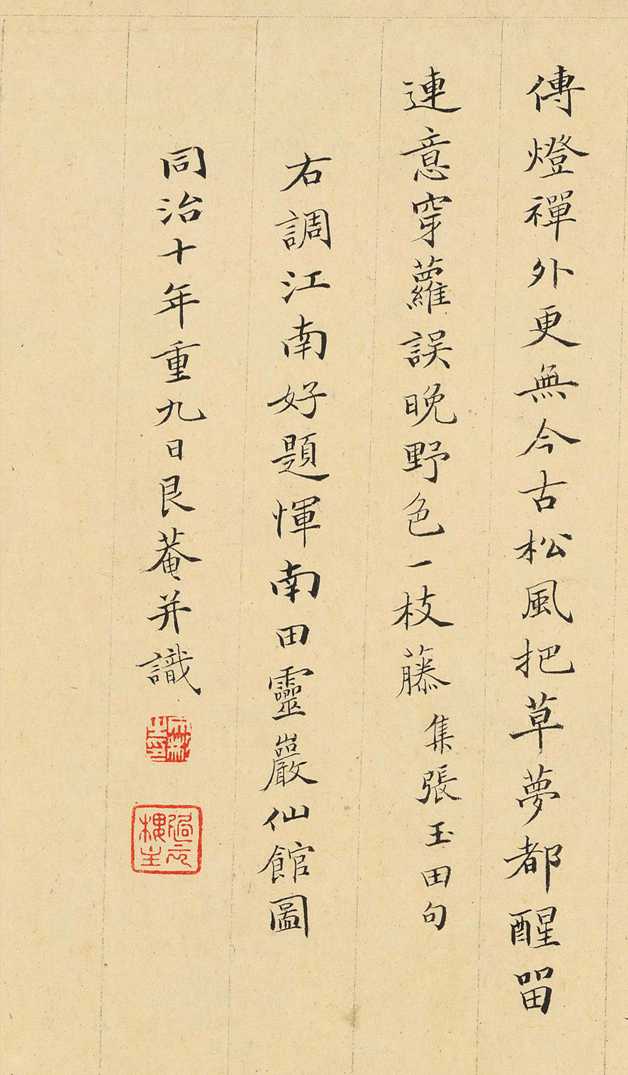 傳燈禪外更無今古松風把草夢都醒留
連意穿蘿誤晚野色一枝藤 集張玉田句
右調江南好題惲南田靈巖仙館圖
同治十年重九日艮菴并識
過云樓主